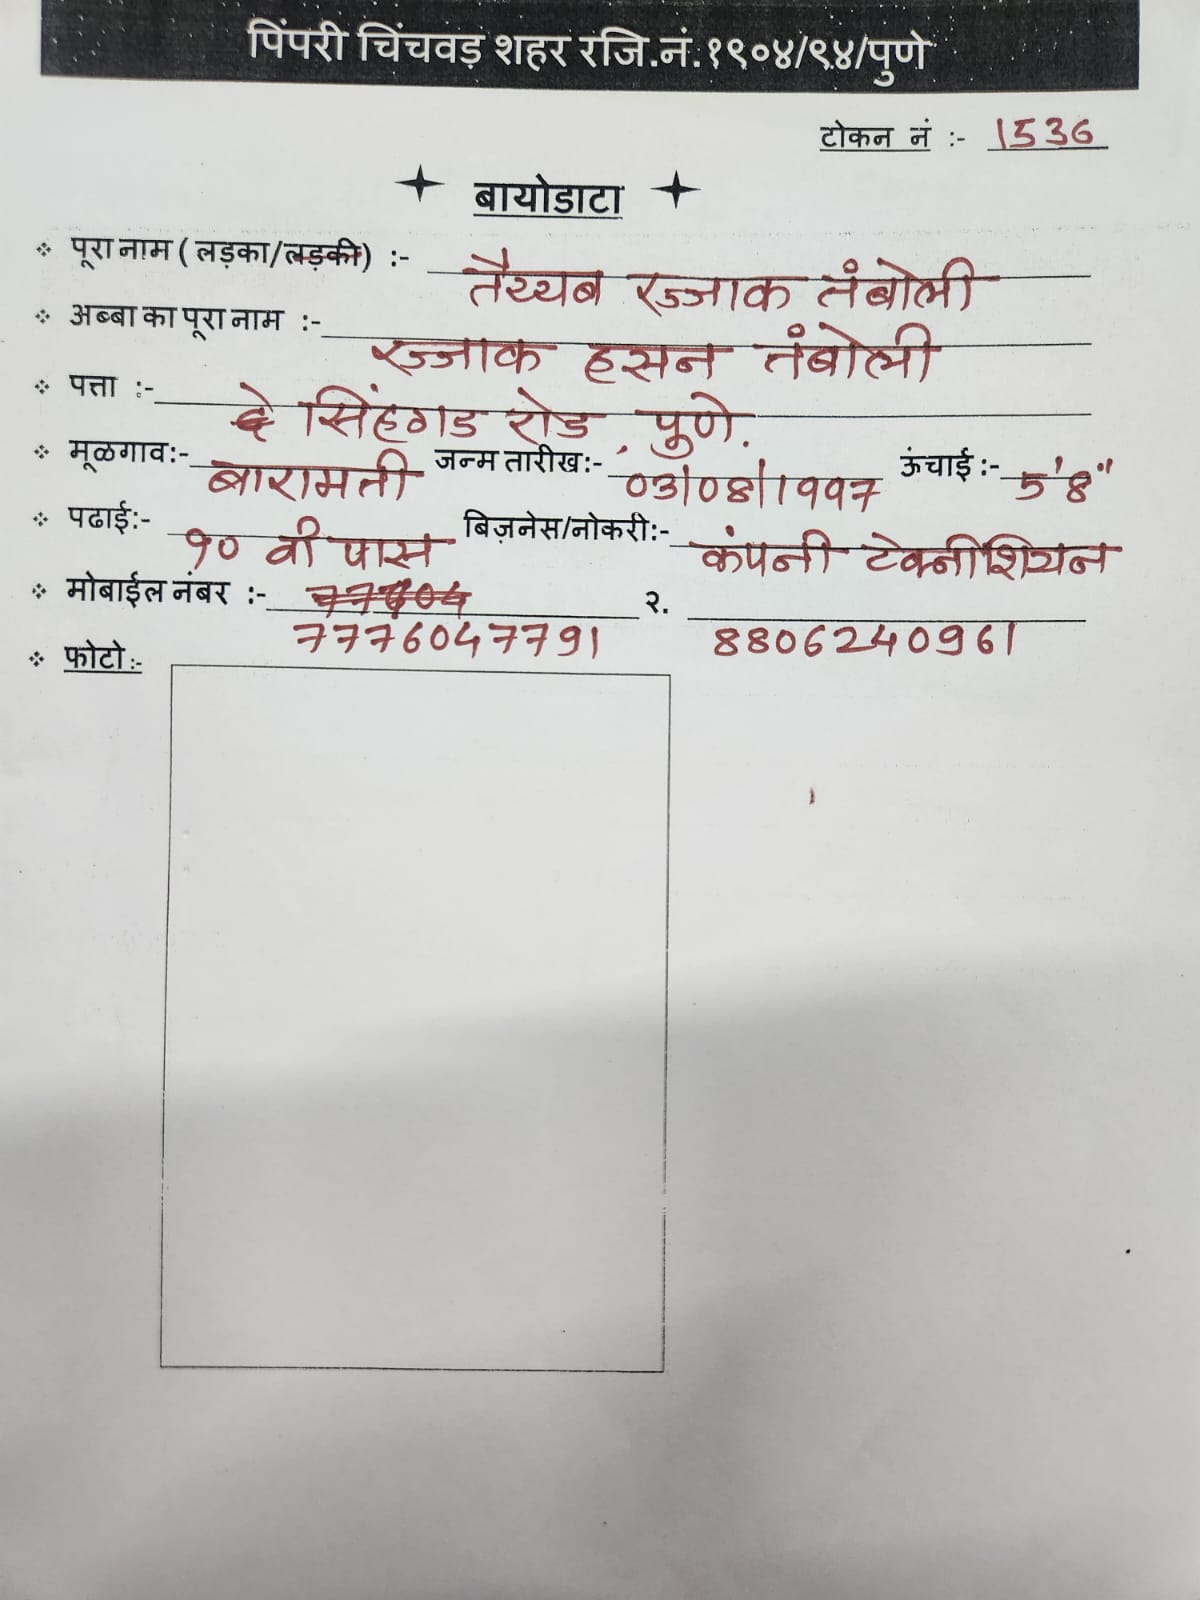 पिंपरी चिंचवड़ शहर रजि.नं.१९०४/९४/पुणे
टोकन नं :- 1536
बायोडाटा
पूरा नाम ( लड़का/लड़की) :- तैय्यब रज्जाक तंबोली
अब्बा का पूरा नाम :- रज्जाक हसन तंबोली
पत्ता :- सिंहगड रोड, पुणे.
मूळगाव:- बारामती जन्म तारीख:- 03/08/1997 ऊंचाई :- 5'8"
पढाई:- १० वी पास बिज़नेस/नोकरी:- कंपनी टेक्नीशियन
मोबाईल नंबर :- 7776047791 २. 8806240961
फोटो:-